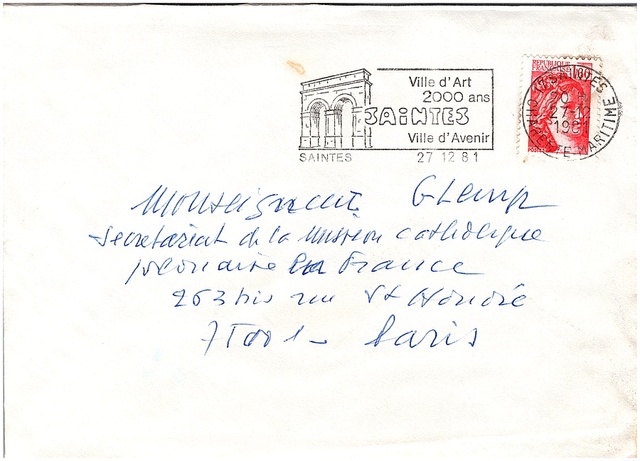 Ville d'Art
2000 ans
SAINTES
Ville d'Avenir
SAINTES
27 12 81
REPUBLIQUE
FRANCAISE
17 SAINTES
27-12
1981
CHARENTE MARITIME
Monseigneur Glemp
Secretariat de la Mission catholique
polonaise en France
263 bis rue St Honoré
75001 - Paris